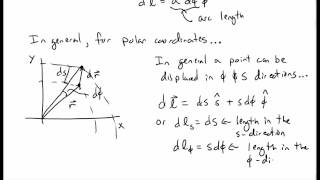 dl = a dφ φ̂
arc length
In general, for polar coordinates...
In general a point can be
displaced in φ & s directions...
y
ds
dr⃗
r⃗
dφ
x
dl⃗ = ds ŝ + s dφ φ̂
or dl_s = ds ← length in the
s-direction
dl_φ = s dφ ← length in the
φ-di